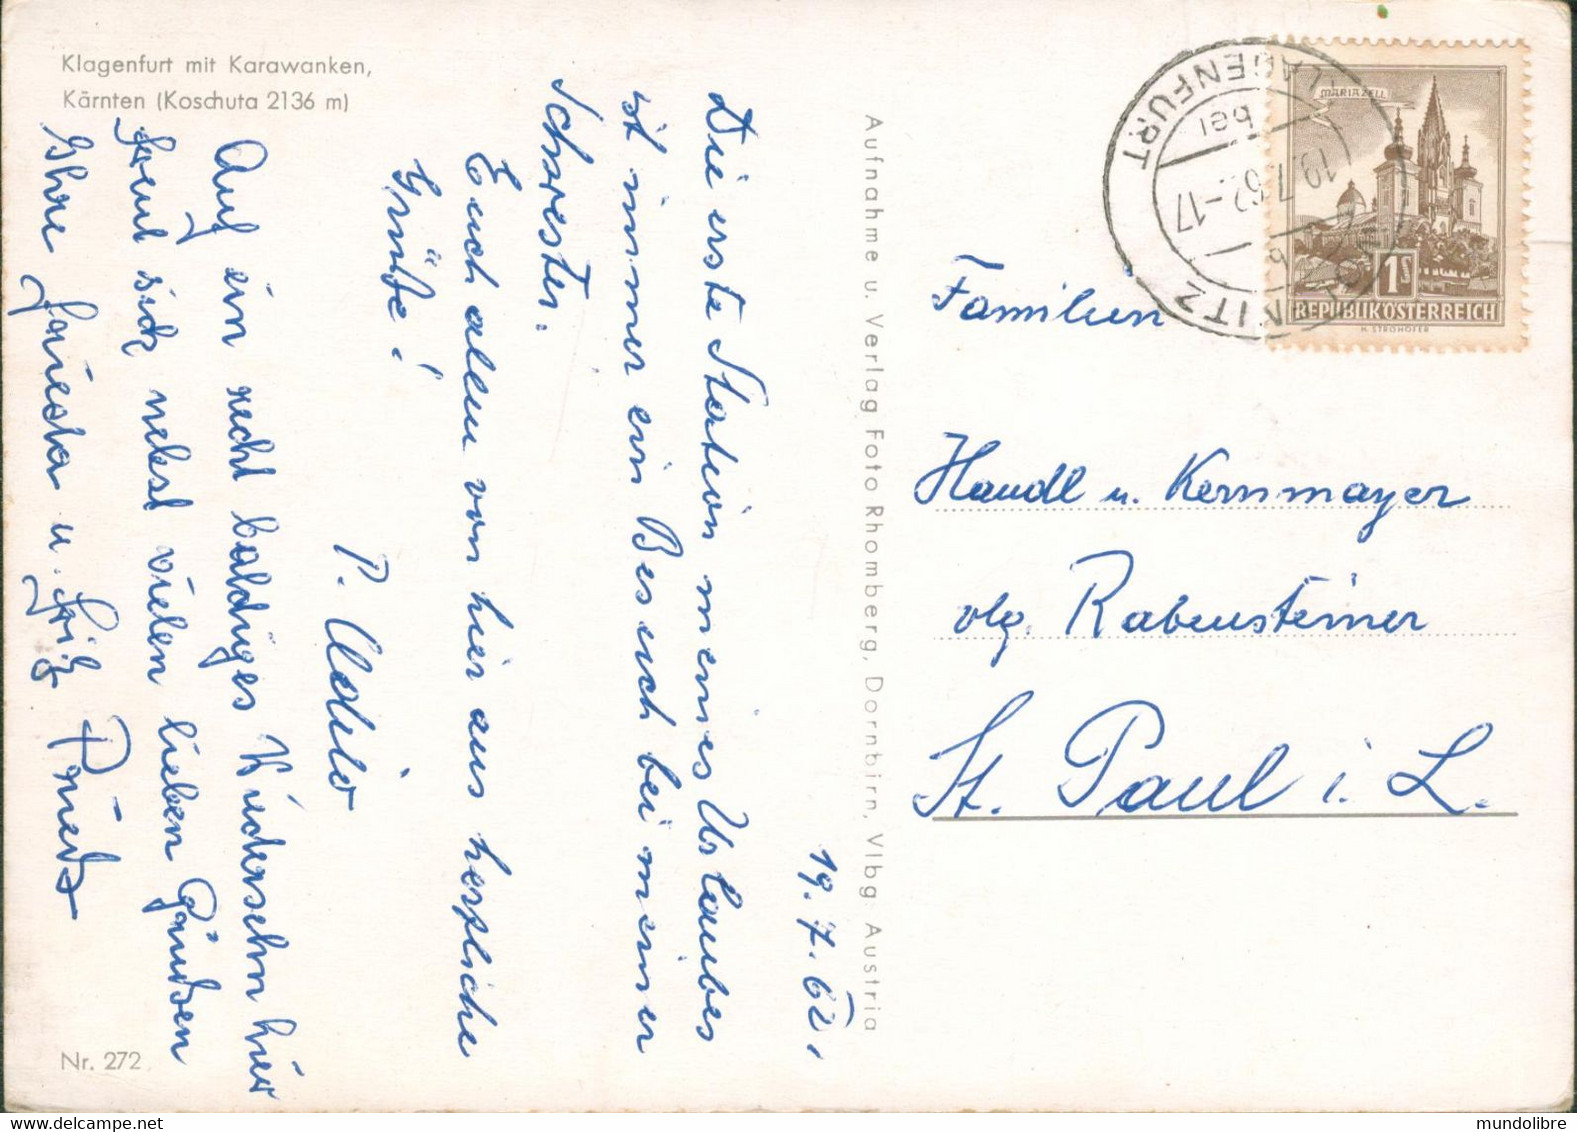 Klagenfurt mit Karawanken,
Kärnten (Koschuta 2136 m)
19.7.62.
Die erste Station meines Urlaubes
ist immer ein Besuch bei meiner
Schwester.
Euch allen von hier aus herzliche
Grüße!
P.
Auf ein recht baldiges Wiedersehn hier
freut sich nebst vielen lieben Grüssen
Ihre u.
Nr. 272
Aufnahme u. Verlag Foto Rhomberg, Dornbirn, Vlbg. Austria
KLAGENFURT
bei
19.7.62-17
MARIAZELL
1S
REPUBLIK ÖSTERREICH
H. STROHOFER
Familien
Handl u. Kernmayer
vlg. Rabensteiner
St. Paul i. L.
mundolibre